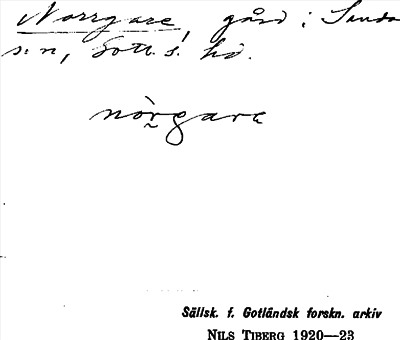 Norrgare, gård i Sunds
s:n, Gotl. s. hd.
nòrgarε
Sällsk. f. Gotländsk forskn. arkiv
NILS TIBERG 1920—23